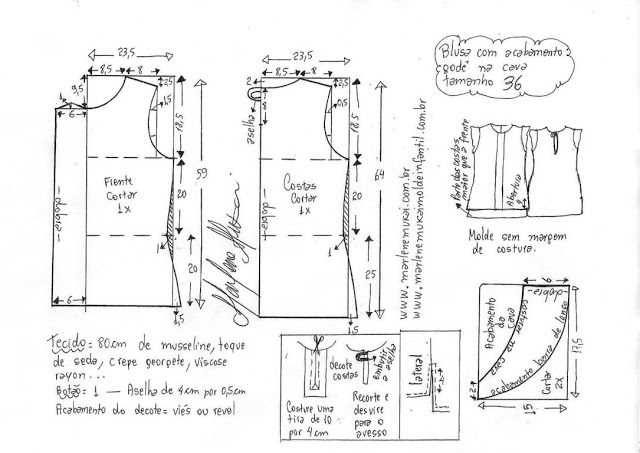 23,5
8,5
8
9,5
2,5
1,5
18,5
1
6
Frente
Cortar
1x
- dobra -
20
59
1
20
6
1,5
23,5
2
8,5
8
2,5
0,5
8
aselha
18,5
Costas
Cortar
1x
- dobra -
20
64
1
25
1,5
Marlene Mukai
www.marlenemukai.com.br
www.marlenemukaimoldeinfantil.com.br
Blusa com acabamento
"godê" na cava
tamanho 36
Parte das costas
maior que a frente
Abertura
Molde sem margem
de costura.
6
- dobra -
Acabamento
da
cava
costurar na cava
acabamento barra de lenço
Cortar
2x
17,5
15
Tecido = 80cm de musseline, toque
de seda, crepe georgete, viscose
rayon...
Botão = 1 — Aselha de 4cm por 0,5cm
Acabamento do decote = viés ou revel
decote
costas
Embutir
a aselha
Costure uma
tira de 10
por 4cm
Recorte e
desvire
para o
avesso
lateral